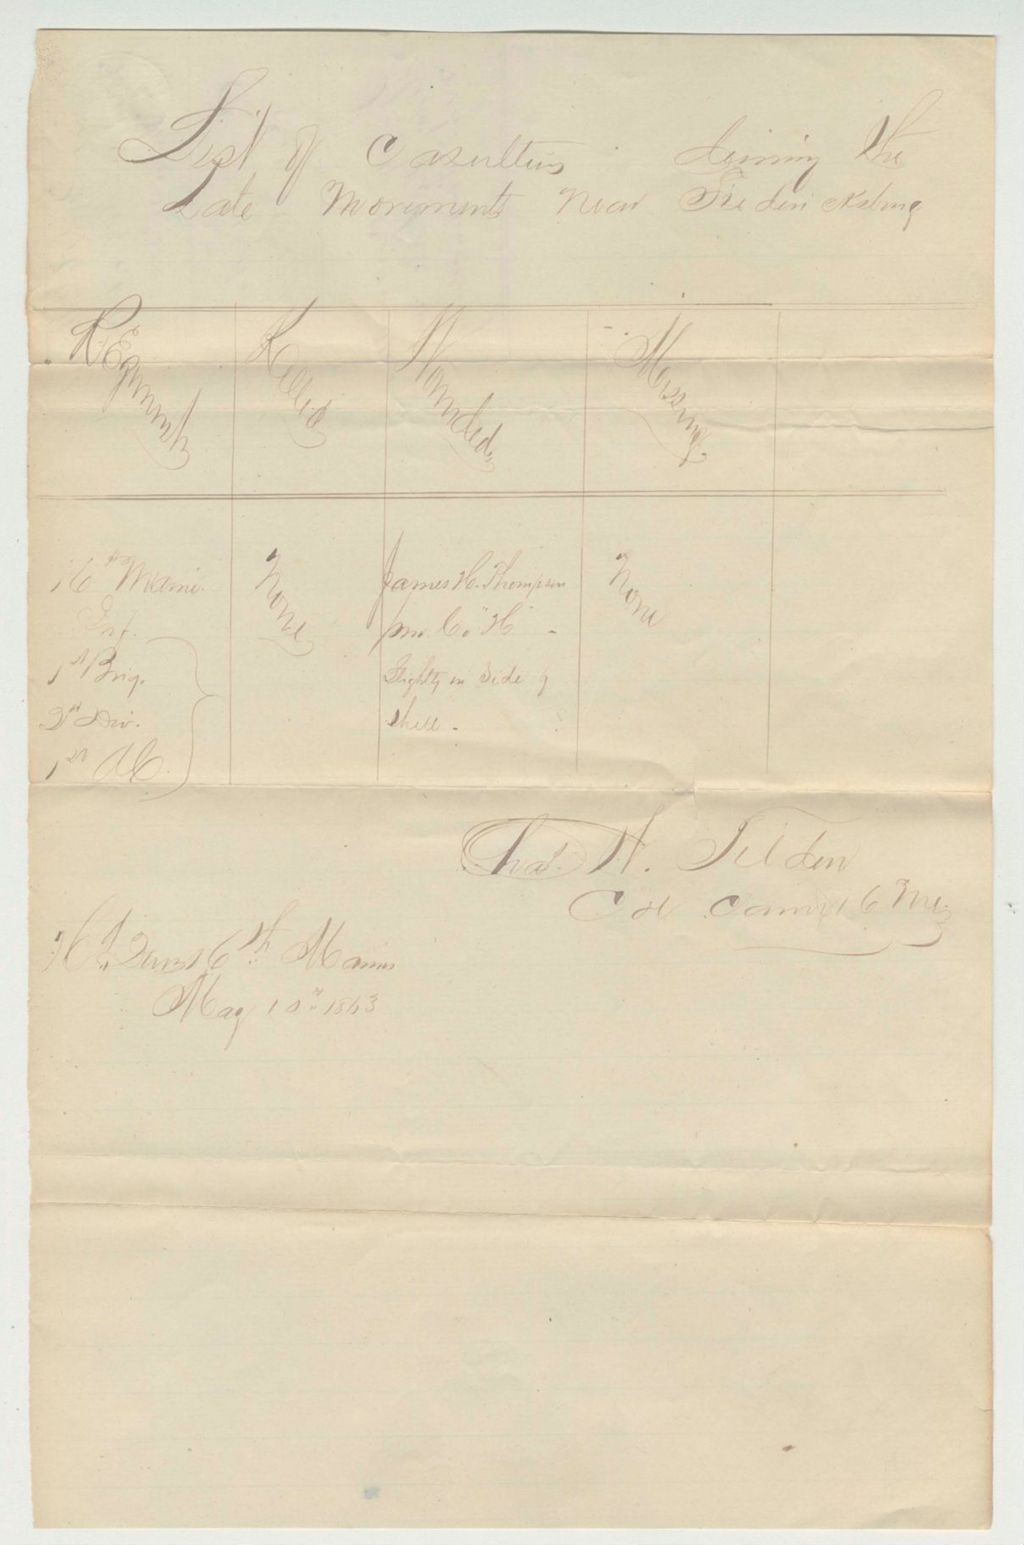 List of Casulties during the
Late Movements Near Fredericksburg
Regiment Killed Wounded Missing
16th Maine None James H. Thompson None
Inf. priv. Co. "H"
1st Brig. Slightly in Side of
2nd Div. Shell.
1st A.C.
Chas. W. Tilden
Col Comdg 16 Me
Hd. Qurs 16th Maine
May 10th 1863